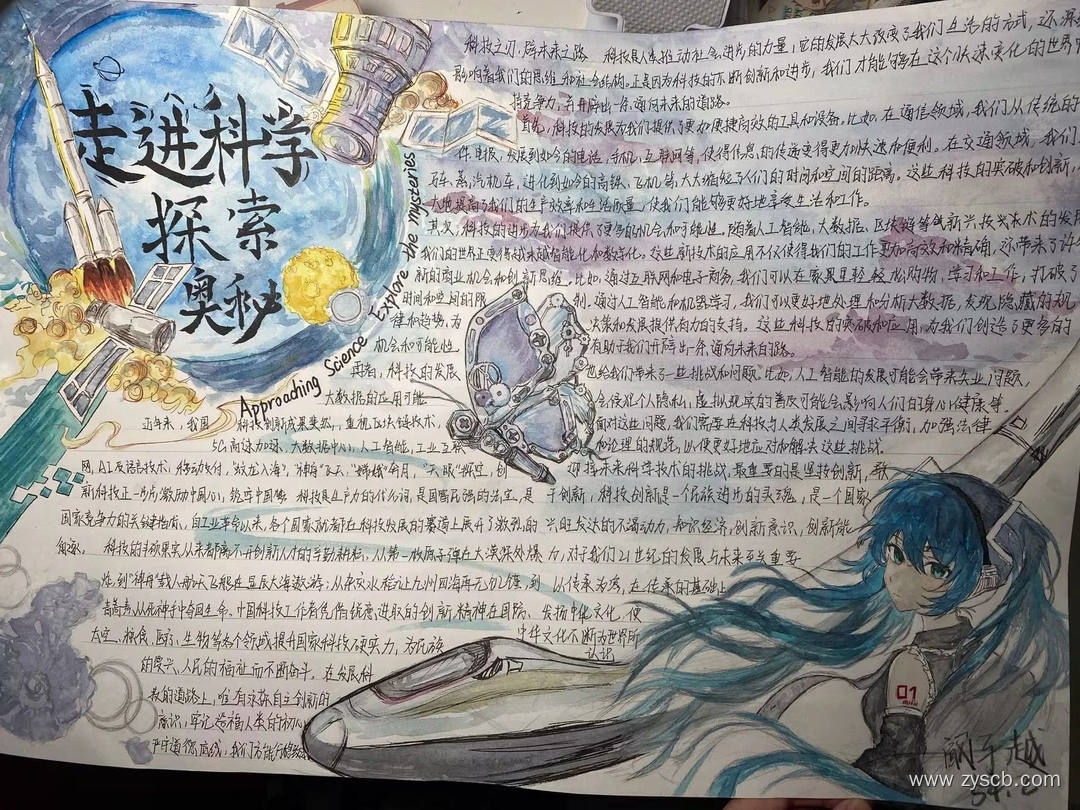 走进科学
探索
奥秘
Approaching Science Explore the mysteries
科技之刃,辟未来之路 科技是人类推动社会进步的力量,它的发展大大改变了我们生活的方式,还深
影响着我们的思维和社会结构。正是因为科技的不断创新和进步,我们才能够在这个快速变化的世界中
持竞争力,并开辟出一条通向未来的道路。
首先,科技的发展为我们提供了更加便捷高效的工具和设备。比如,在通信领域,我们从传统的
件电报,发展到如今的电话、手机、互联网等,使得信息的传递变得更加快速和便利。在交通领域,我们
车、蒸汽机车,进化到如今的高铁、飞机等,大大缩短了人们的时间和空间的距离。这些科技的突破和创新,
大地提高了我们的生产效率和生活质量,使我们能够更好地享受生活和工作。
其次,科技的进步为我们提供了更多的机会和可能性。随着人工智能、大数据、区块链等新兴技术的发
我们的世界正变得越来越智能化和数字化。这些新技术的应用不仅使得我们的工作更加高效和精确,还带来了许
新的商业机会和创新思维。比如,通过互联网和电子商务,我们可以在家里轻松购物、学习和工作,打破了
时间和空间的限制,通过人工智能和机器学习,我们可以更好地处理和分析大数据,发现隐藏的机
律和趋势,为决策和发展提供有力的支持。这些科技的突破和应用,为我们创造了更多的
机会和可能性,有助于我们开辟出一条通向未来的路。
再者,科技的发展也给我们带来了一些挑战和问题。比如,人工智能的发展可能会带来失业问题,
大数据的应用可能会侵犯个人隐私,虚拟现实的普及可能会影响人们的身心健康等。
面对这些问题,我们需要在科技与人类发展之间寻求平衡,加强法律
和伦理的规范,以便更好地应对和解决这些挑战。
近年来,我国科技创新成果斐然,重视区块链技术,
5G高速加速、大数据中心、人工智能、工业互联
网、AI及语言技术、移动支付,“蛟龙入海”、“神舟”飞天、“嫦娥”奔月、“天眼”探空,创
新科技正一步步激励中国心,统牵中国梦 科技是生产力的代名词,是国富民强的法宝,是
国家竞争力的关键指标,自工业革命以来,各个国家就都在科技发展的赛道上展开了激烈的
角逐。 科技的丰硕果实从来都离不开创新人才的辛勤耕耘。从第一颗原子弹在大漠深处爆
炸,到“神舟”载人航天飞船在星辰大海遨游;从杂交水稻让九州四海再无饥馑,到
青蒿素从死神手中夺回生命。中国科技工作者凭借锐意进取的创新精神在国防、
太空、粮食、医疗、生物等各个领域提升国家科技硬实力,为民族
的复兴、人民的福祉而不断奋斗。在发展科
技的道路上,唯有永葆自立创新的
意识,牢记造福人类的初心,
严守道德底线,我们方能行稳致
迎接未来科学技术的挑战,最重要的是坚持创新,敢
于创新,科技创新是一个民族进步的灵魂,是一个国家
兴旺发达的不竭动力,知识经济,创新意识,创新能
力,对于我们21世纪的发展与未来至关重要
以传承为荣,在传承的基础上
发扬中华文化,使
中华文化不断为世界所
认识
01
www.zyscb.com